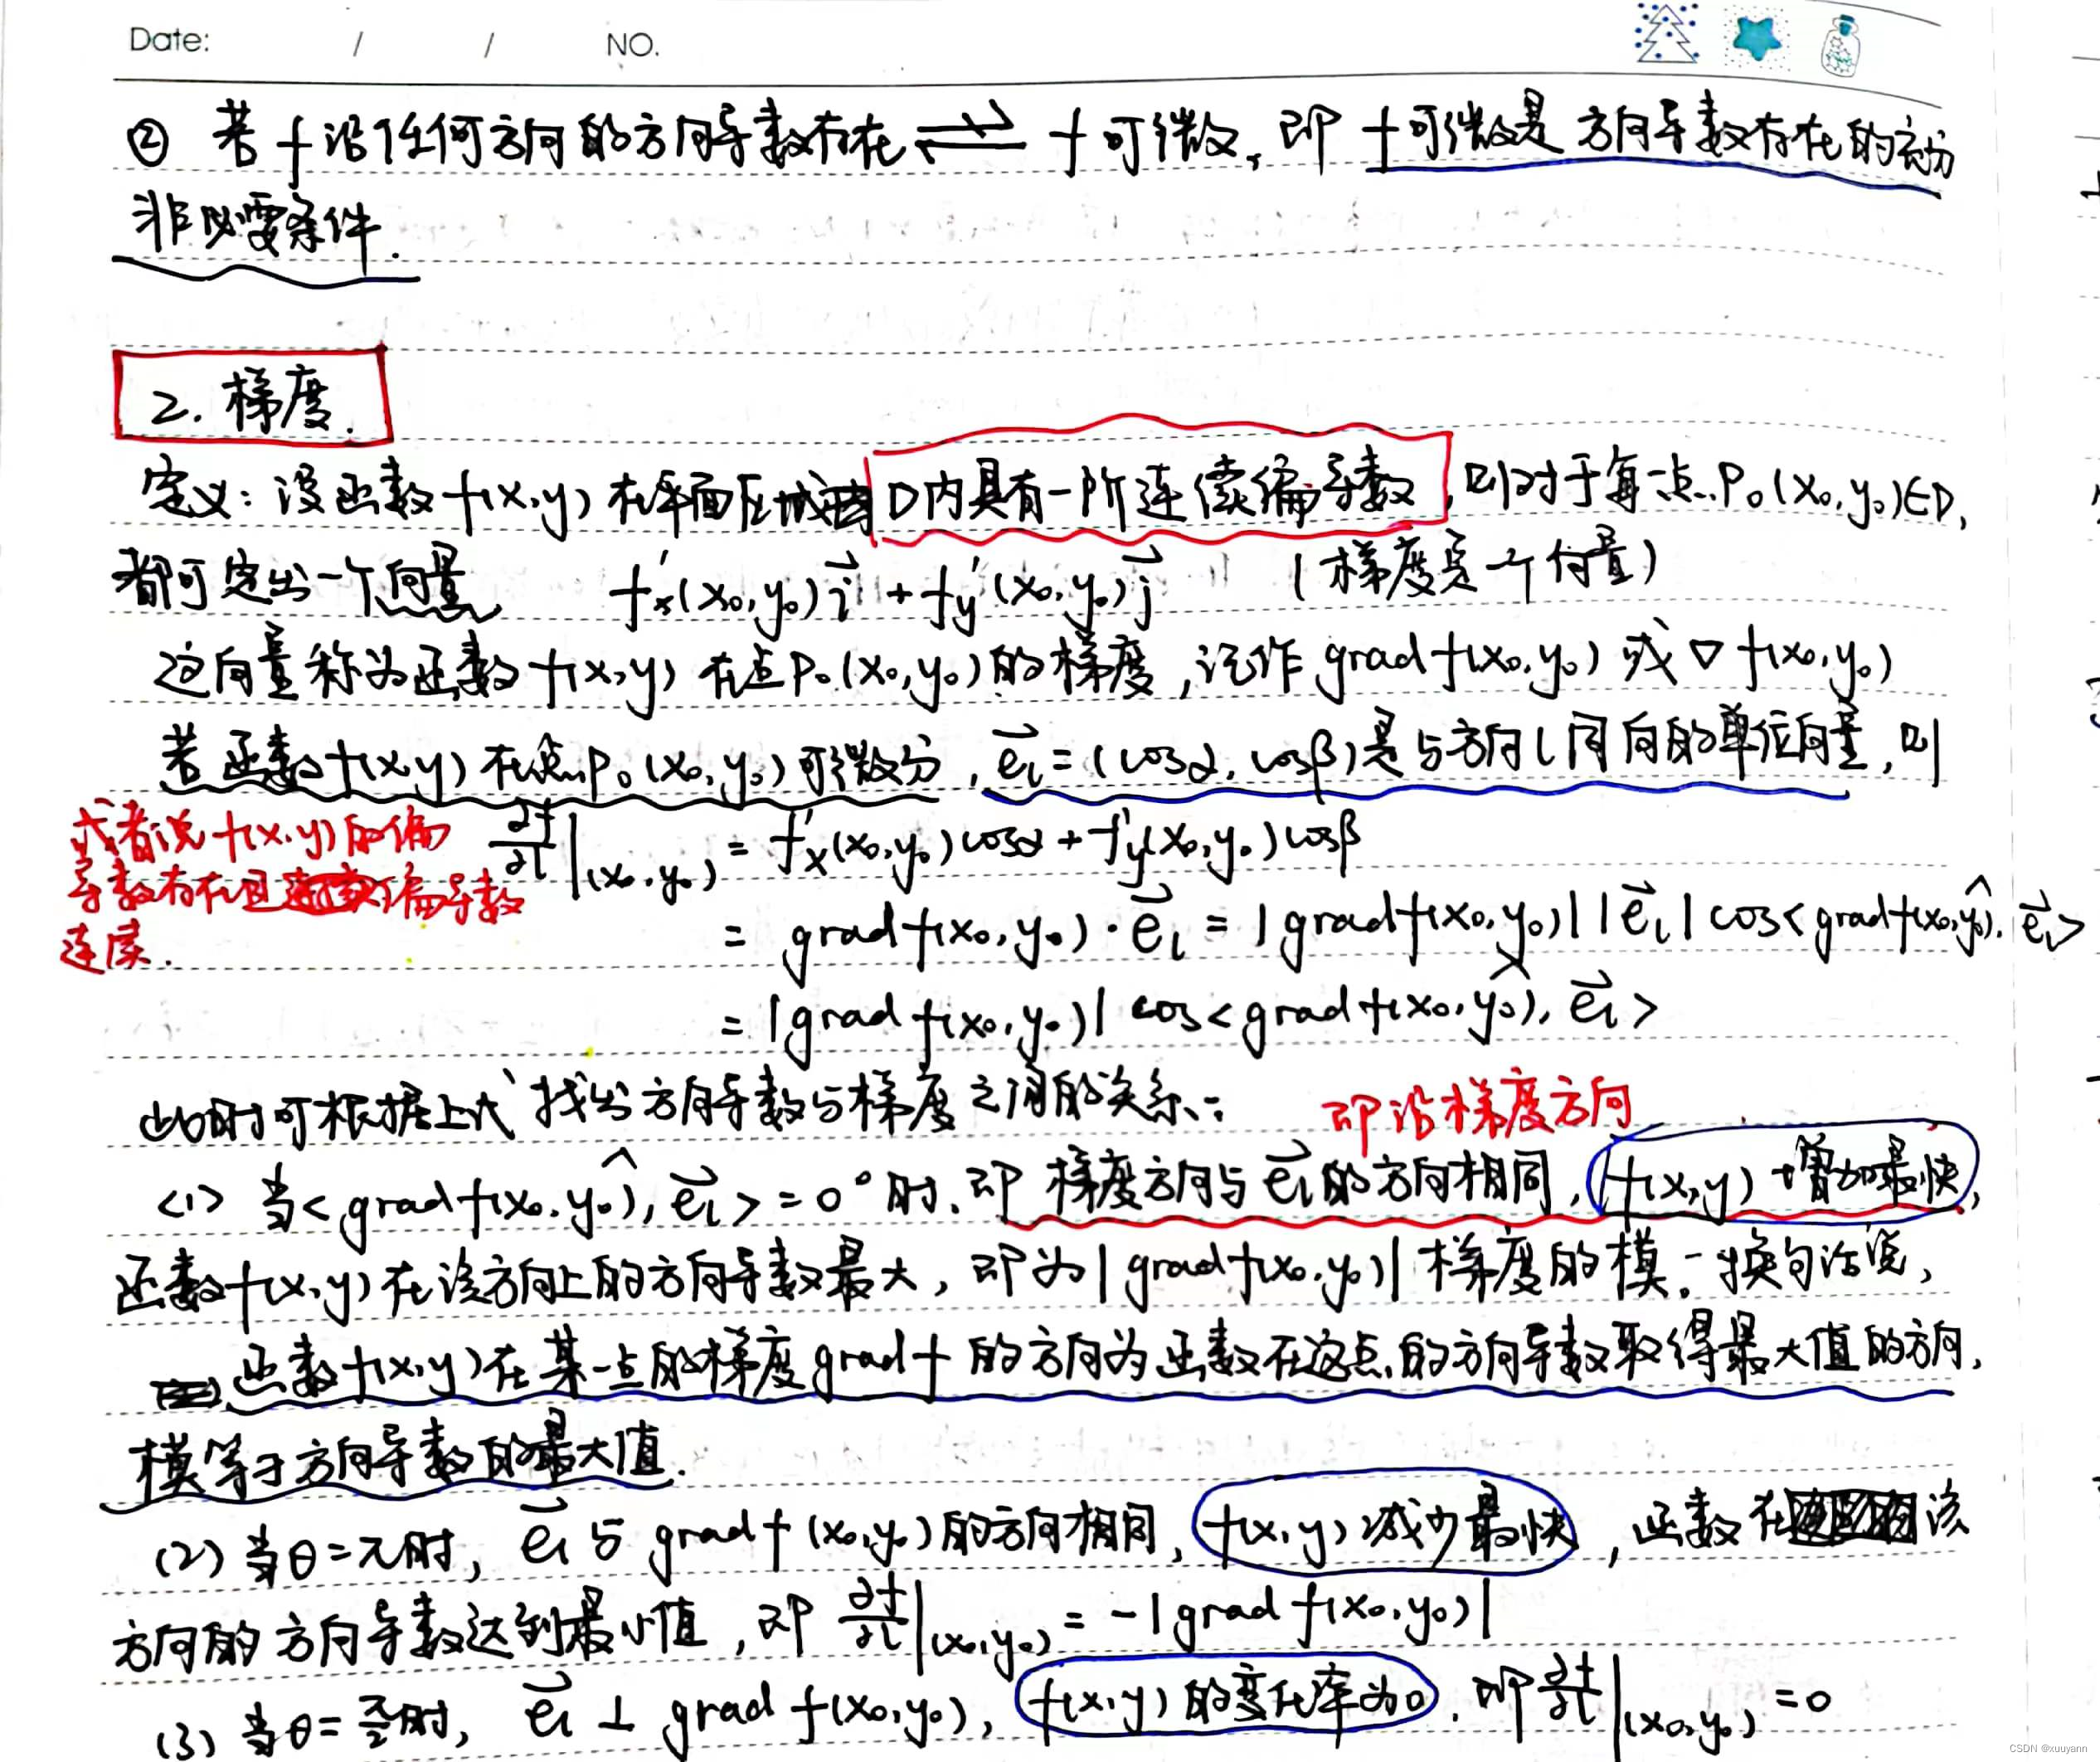 Date: / / NO.
② 若f沿任何方向的方向导数存在⇌f可微, 即 f可微是方向导数存在的充分
非必要条件.
2. 梯度.
定义: 设函数f(x,y)在平面区域D内具有一阶连续偏导数, 则对于每一点P₀(x₀,y₀)∈D,
都可定出一个向量 f'ₓ(x₀,y₀)i⃗+f'ᵧ(x₀,y₀)j⃗ (梯度是一个向量)
这向量称为函数f(x,y)在点P₀(x₀,y₀)的梯度,记作gradf(x₀,y₀)或▽f(x₀,y₀)
若函数f(x,y)在点P₀(x₀,y₀)可微分, e⃗ₗ=(cosα,cosβ)是与方向l同向的单位向量,则
或者说f(x,y)的偏
导数存在且偏导数
连续.
∂f/∂l|(x₀,y₀) = f'ₓ(x₀,y₀)cosα+f'ᵧ(x₀,y₀)cosβ
= gradf(x₀,y₀)·e⃗ₗ=|gradf(x₀,y₀)||e⃗ₗ|cos<gradf(x₀,y₀),e⃗ₗ>
=|gradf(x₀,y₀)|cos<gradf(x₀,y₀),e⃗ₗ>
此时可根据上式找出方向导数与梯度之间的关系:
即沿梯度方向
<1> 当<gradf(x₀,y₀),e⃗ₗ>=0°时,即梯度方向与e⃗ₗ的方向相同,f(x,y)增加最快,
函数f(x,y)在该方向上的方向导数最大,即为|gradf(x₀,y₀)|梯度的模.换句话说,
函数f(x,y)在某一点的梯度gradf的方向为函数在这点的方向导数取得最大值的方向,
模等于方向导数的最大值.
(2) 当θ=π时, e⃗ₗ与gradf(x₀,y₀)的方向相同, f(x,y)减少最快, 函数在该
方向的方向导数达到最小值,即 ∂f/∂l|(x₀,y₀)=-|gradf(x₀,y₀)|
(3) 当θ=π/2时, e⃗ₗ⊥gradf(x₀,y₀), f(x,y)的变化率为0. 即∂f/∂l|(x₀,y₀)=0
CSDN @xuuyann